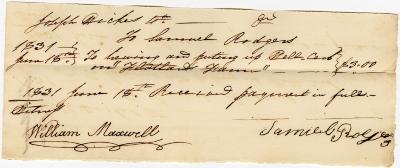 Joseph Hickes to Dr
To Samuel Rodgers
1831
June 18th To hewing and puting up Bell
on $3.00
1831 June 18th Received payment in full
William Maxwell Samuel Rodgers